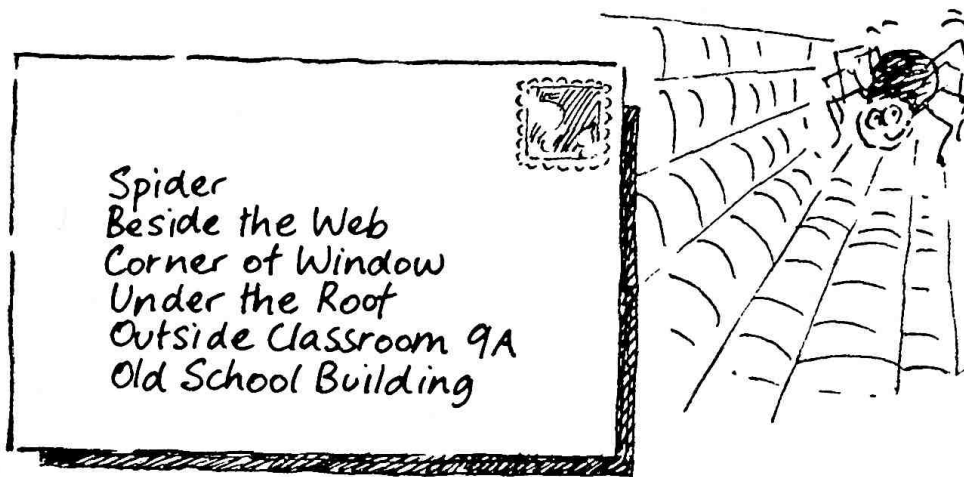 Spider
Beside the Web
Corner of Window
Under the Roof
Outside Classroom 9A
Old School Building